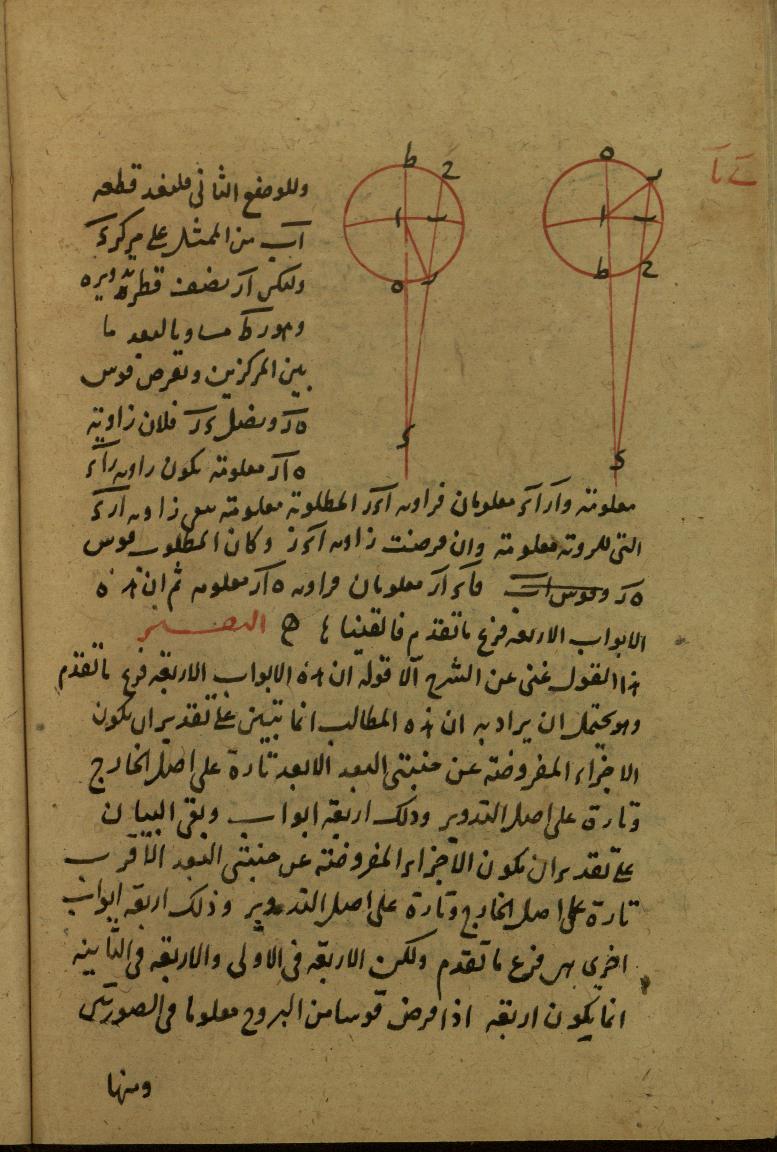 وللوضع الثانى فليفد قطعه
اب من الممثل على مركز ء
وليكن ا ر نصف قطر تدوير ه
وهو ر ط مساويا لبعد ما
بين المركزين ونفرض قوس
ه ر ونصل ء ر فلان زاوية
ه ا ر معلومة يكون زاويه ر ا ء
معلومة و ا ر ا ء معلومان فزاويه ا ء ر المطلوبة معلومة مع زاويه ا ر ء
التى للروية معلومة وان فرضت زاويه ا ء ر وكان المطلوب قوس
ه ر فا ء ا ر معلومان فزاويه ه ا ر معلومه ثم ان هذه
الابواب الاربعه فرع ما تقدم فالقيناها ح التفسير
هذا القول غنى عن الشرح الا قوله ان هذه الابواب الاربعه فرع ما تقدم
وهو يحتمل ان يراد به ان هذه المطالب انما تتبين على تقدير ان يكون
الاجزاء المفروضة عن جنبتى البعد الابعد تارة على اصل الخارج
وتارة على اصل التدوير وذلك اربعة ابواب وبقى البيان
على تقدير ان يكون الاجزاء المفروضة عن جنبتى البعد الاقرب
تارة على اصل الخارج وتارة على اصل التدوير وذلك اربعة ابواب
اخرى هى فرع ما تقدم ولكن الاربعة فى الاولى والاربعة فى الثانية
انما يكون اربعه اذا فرض قوسا من البروج معلوما فى الصورتين
ومنها